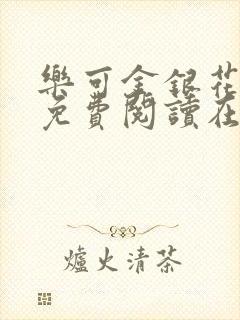 樂可金銀花
免費閱讀在
爐火清茶